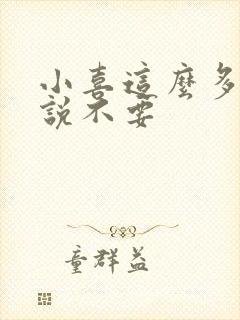 小喜這麼多
說不要
童群益